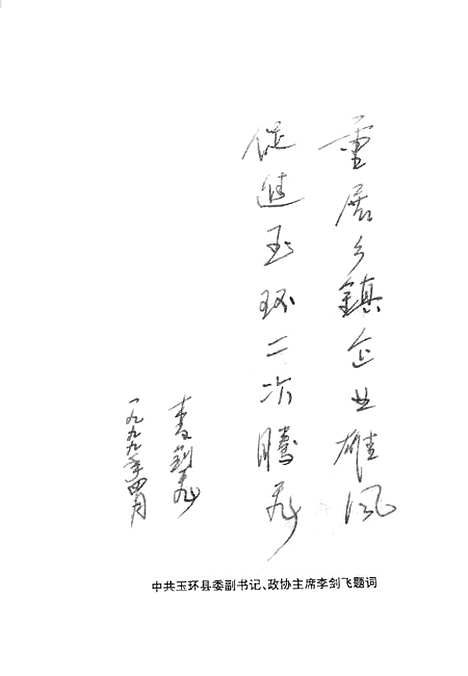 重展乡鎮企业雄风
促进玉环二次腾飞
李剑飞
一九九九年四月
中共玉环县委副书记、政协主席李剑飞题词